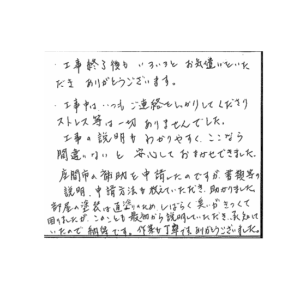 ・工事終了後も いろいろと お気遣いをいた
だき ありがとうございます。
・工事中は いつも ご連絡をしっかりして くださり
ストレス等は 一切 ありませんでした。
工事の説明も わかりやすく、ここなら
間違いないと 安心して おまかせできました。
座間市の補助を申請したのですが、書類等の
説明、申請方法も教えていただき、助かりました。
部屋の塗装は 直塗りのため しばらく 臭いがきつくて
困りましたが、このことも 最初から説明していただき、承知して
いたので 納得です。作業も丁寧で ありがとうございました。